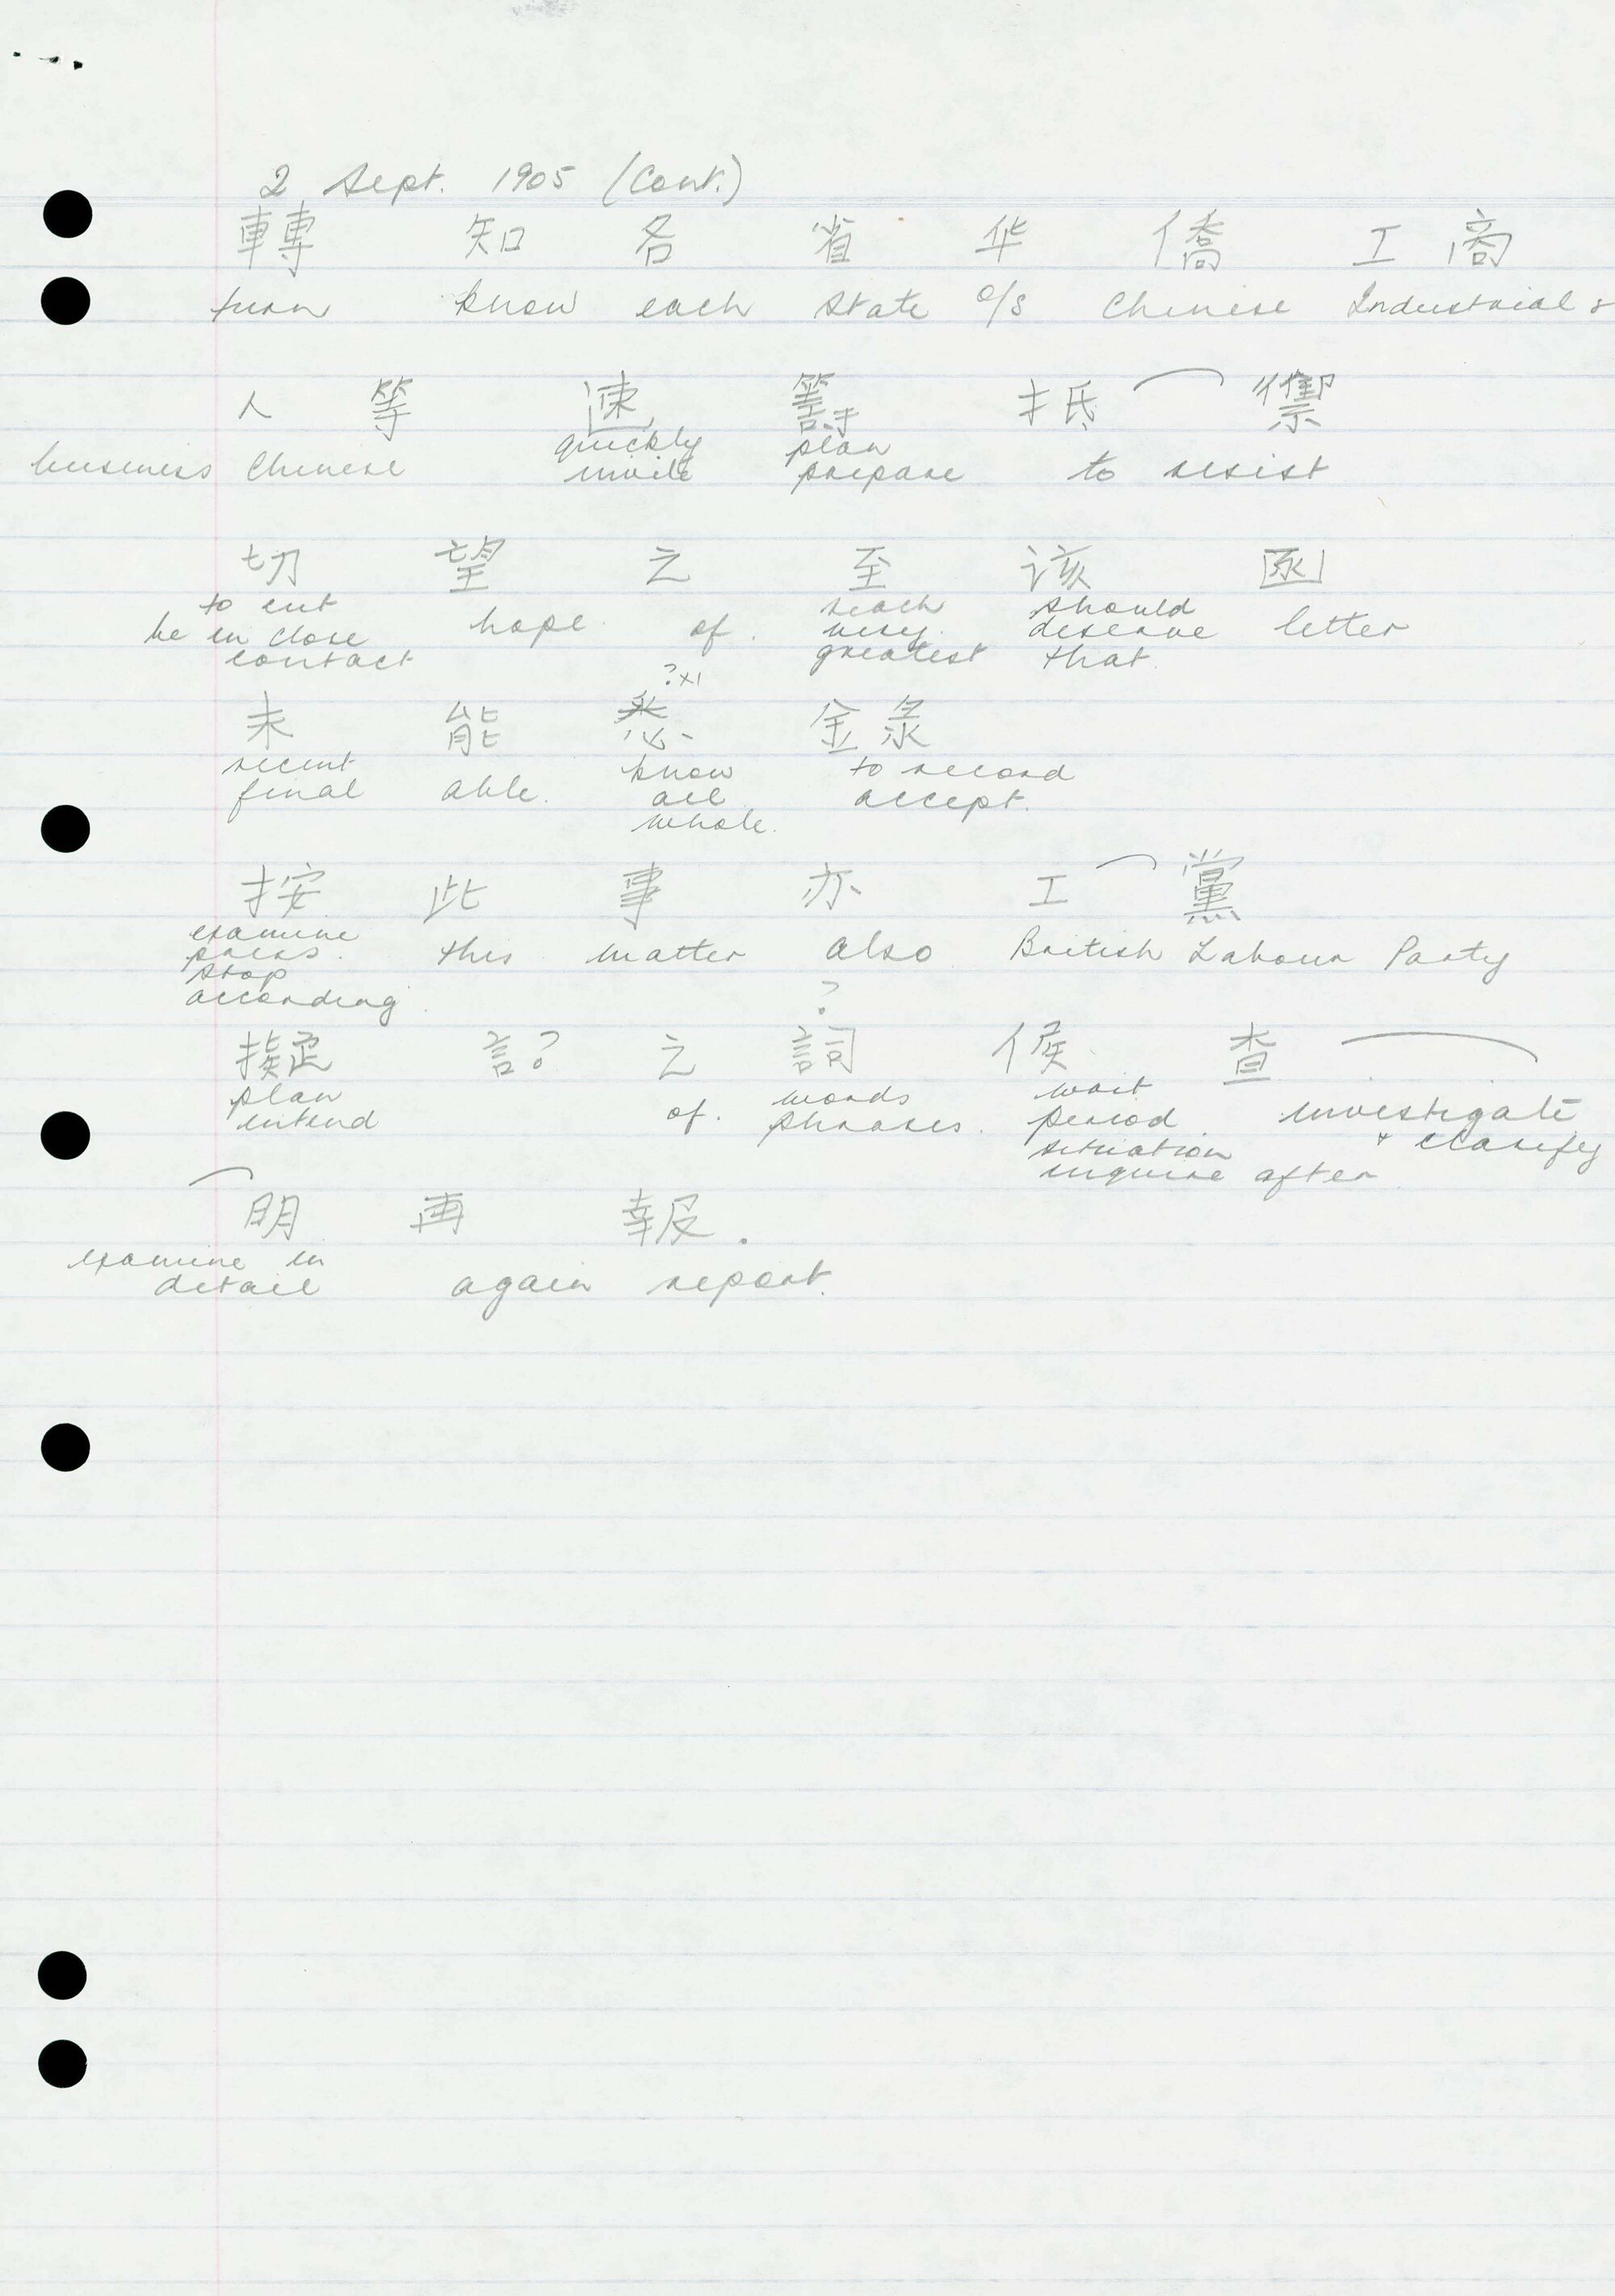 2 Sept. 1905 (Cont.)
轉 知 各 省 华 僑 工 商
turn know each state o/s Chinese Industrial &
人 等 速 籌 抵 禦
quickly plan
business Chinese invite prepare to resist
切 望 之 至 该 函
to cut reach should
be in close hope of. very deserve letter
contact greatest that
? x1
未 能 悉 錄
recent know to record
final able. all accept.
whole.
按 此 事 亦 工 黨
examine
press. this matter also British Labour Party
stop
according
?
擬 言? 之 詞 候 查
plan words wait
intend of. phrases. period investigate
situation & clarify
inquire after
明 再 報.
examine in
detail again report.